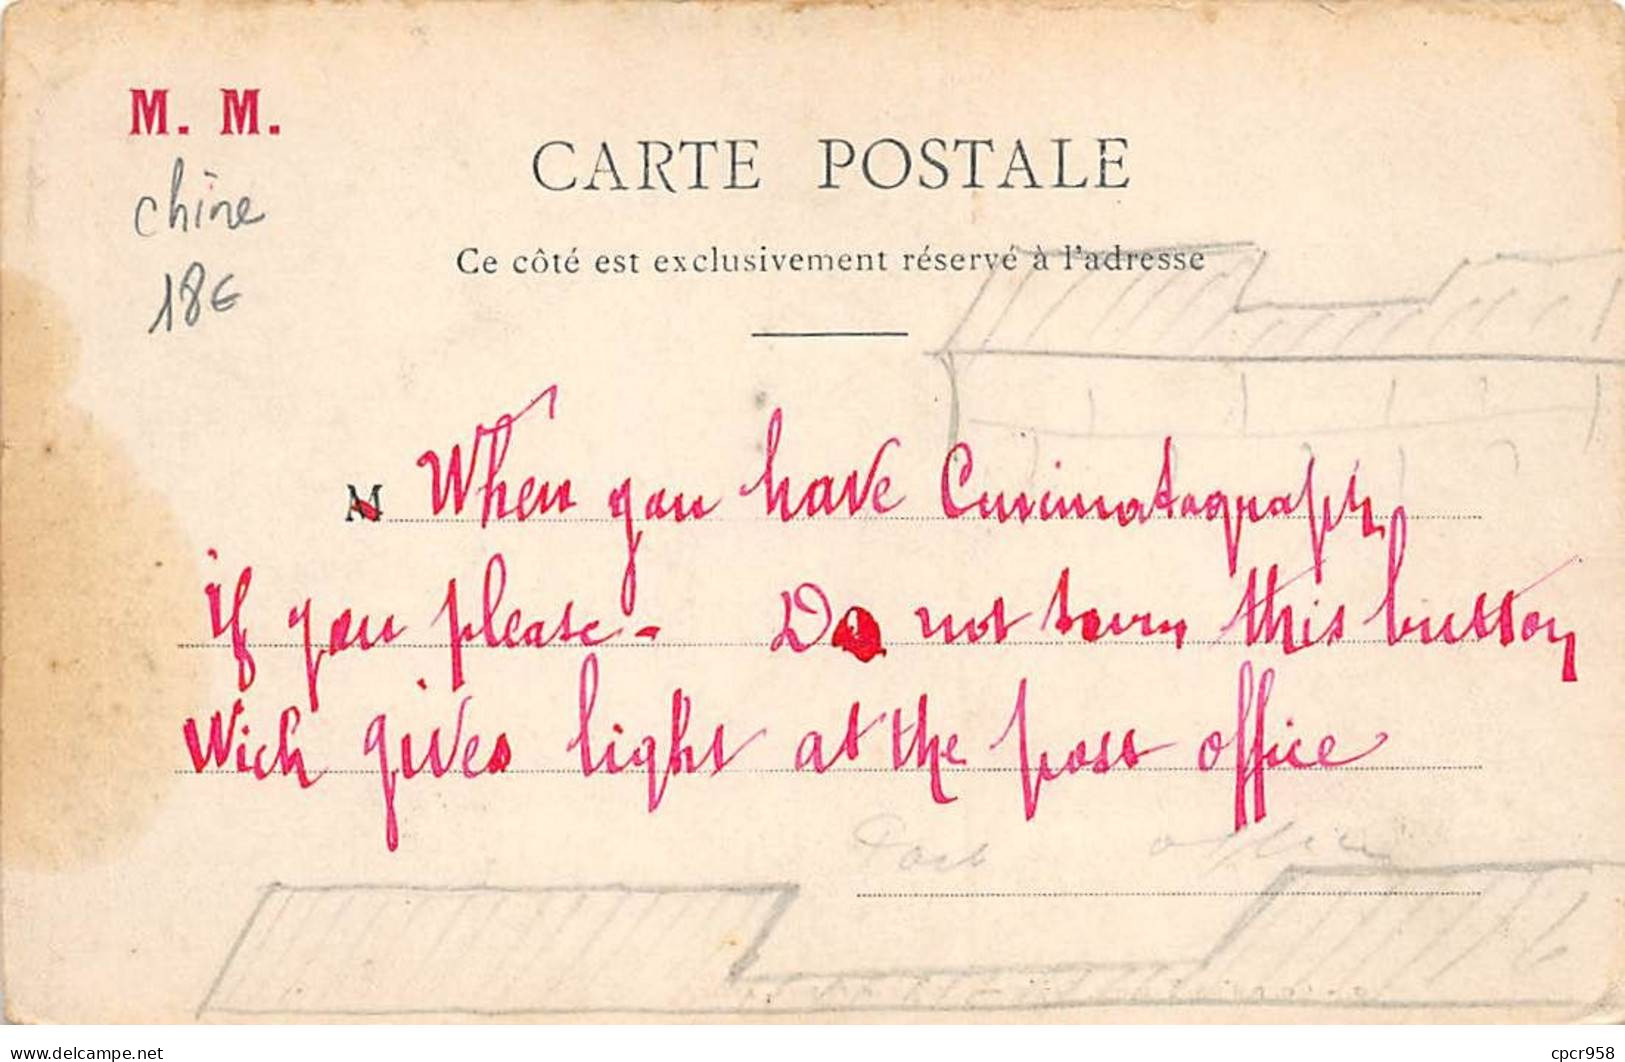 M. M.
chine
18€
CARTE POSTALE
Ce côté est exclusivement réservé à l'adresse
M When you have Cinimatograph
if you please - Do not turn this button
Wich gives light at the post office
Post office
cpcr958